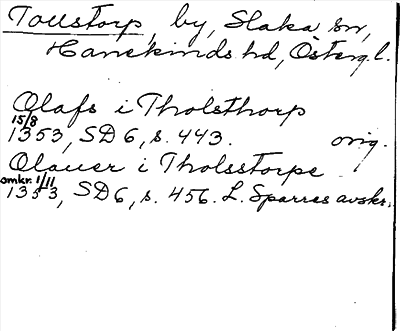 Tollstorp, by, Slaka sn,
Hanekinds hd, Österg. l.
Olafs i Tholsthorp
15/8
1353, SD 6, s. 443. orig.
Olauer i Tholsstorpe
omkr. 1/11
1353, SD 6, s. 456. L. Sparres avskr.